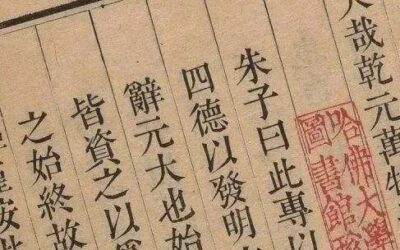 大哉乾元萬物
朱子曰此專以
四德以發明
辭元大也始
皆資之以
之始終故
哈佛大
圖書館